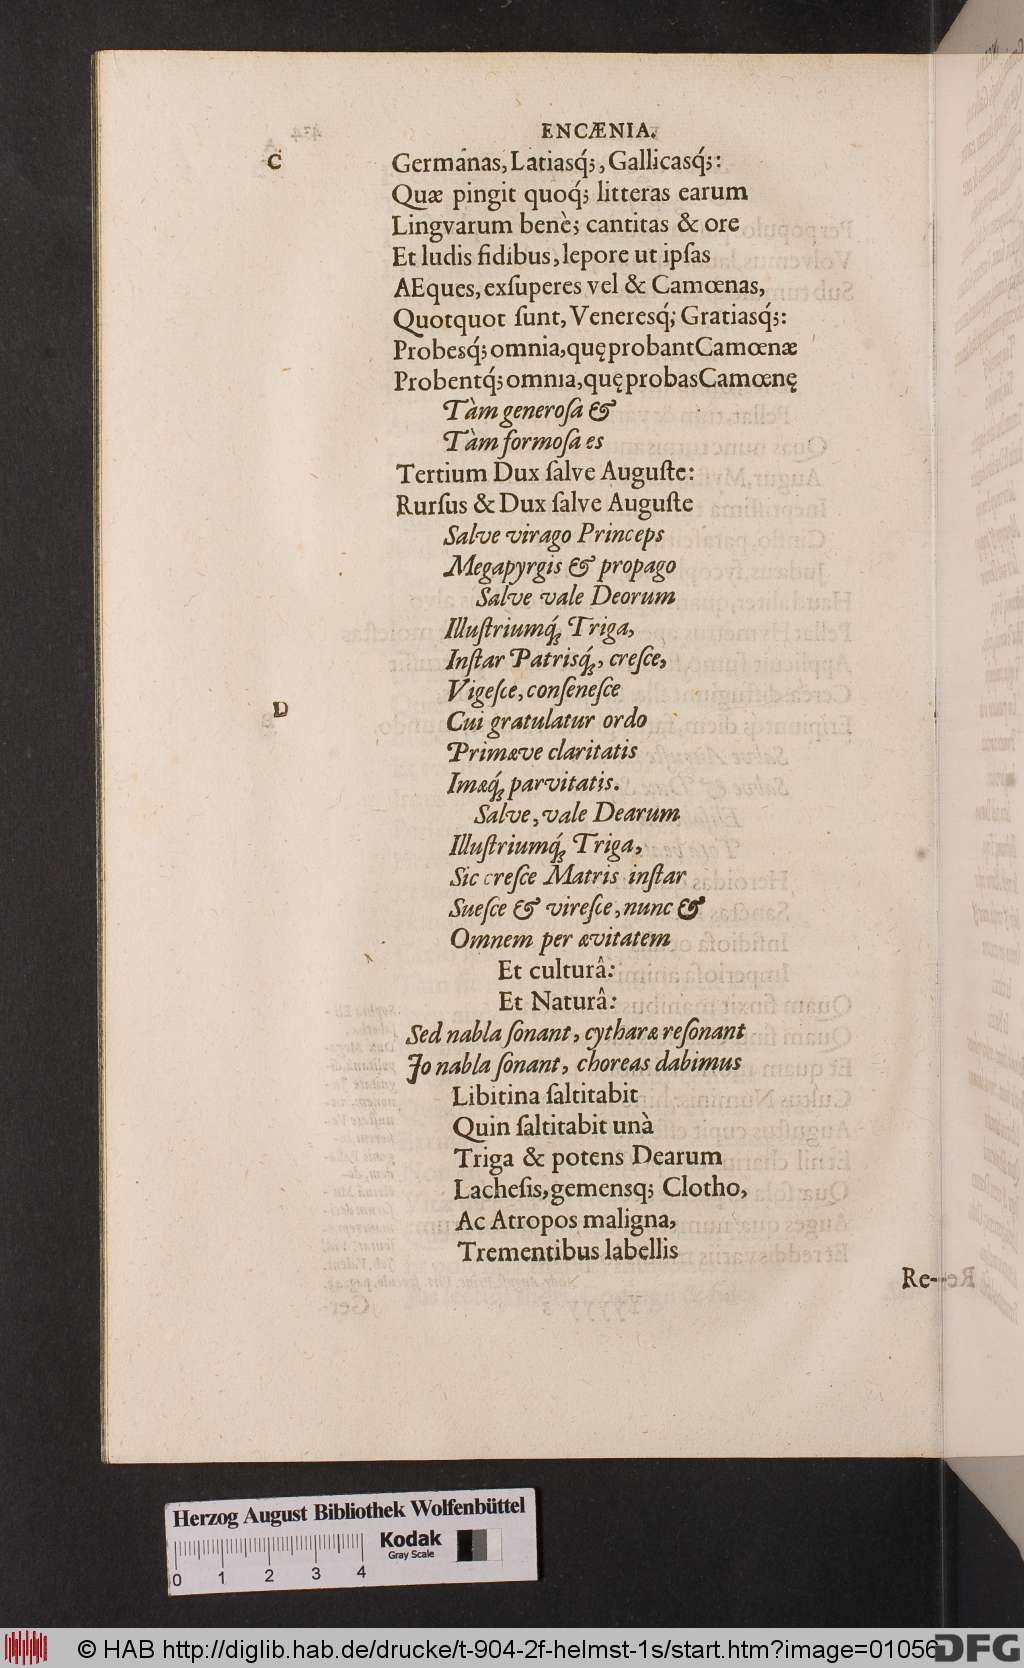 ENCÆNIA.
C
Germanas, Latiasq́;, Gallicasq́;:
Quæ pingit quoq́; litteras earum
Lingvarum benè; cantitas & ore
Et ludis fidibus, lepore ut ipſas
AEques, exſuperes vel & Camœnas,
Quotquot ſunt, Veneresq́; Gratiasq́;:
Probesq́; omnia, quę probant Camœnæ
Probentq́; omnia, quę probas Camœnę
Tàm generoſa &
Tàm formoſa es
Tertium Dux ſalve Auguſte:
Rurſus & Dux ſalve Auguſte
Salve virago Princeps
Megapyrgis & propago
Salve vale Deorum
Illuſtriumq́; Triga,
Inſtar Patrisq́;, creſce,
Vigeſce, conſeneſce
D
Cui gratulatur ordo
Primæve claritatis
Imæq́; parvitatis.
Salve, vale Dearum
Illuſtriumq́; Triga,
Sic creſce Matris inſtar
Sueſce & vireſce, nunc &
Omnem per ævitatem
Et culturâ:
Et Naturâ:
Sed nabla ſonant, cytharæ reſonant
Jo nabla ſonant, choreas dabimus
Libitina ſaltitabit
Quin ſaltitabit unà
Triga & potens Dearum
Lacheſis, gemensq; Clotho,
Ac Atropos maligna,
Trementibus labellis
Re-
Herzog August Bibliothek Wolfenbüttel
Kodak
Gray Scale
0 1 2 3 4
© HAB http://diglib.hab.de/drucke/t-904-2f-helmst-1s/start.htm?image=01056
DFG